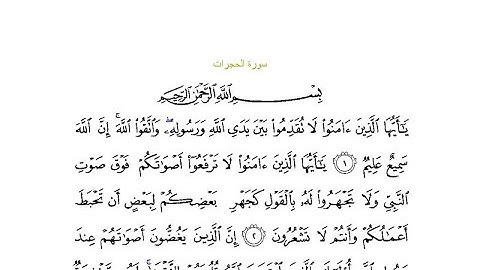 سورة الحجرات
بِسْمِ اللَّهِ الرَّحْمَٰنِ الرَّحِيمِ
يَٰٓأَيُّهَا الَّذِينَ ءَامَنُوا۟ لَا تُقَدِّمُوا۟ بَيْنَ يَدَىِ اللَّهِ وَرَسُولِهِۦ ۖ وَاتَّقُوا۟ اللَّهَ ۚ إِنَّ اللَّهَ
سَمِيعٌ عَلِيمٌ ﴿١﴾ يَٰٓأَيُّهَا الَّذِينَ ءَامَنُوا۟ لَا تَرْفَعُوٓا۟ أَصْوَٰتَكُمْ فَوْقَ صَوْتِ
النَّبِىِّ وَلَا تَجْهَرُوا۟ لَهُۥ بِالْقَوْلِ كَجَهْرِ بَعْضِكُمْ لِبَعْضٍ أَن تَحْبَطَ
أَعْمَٰلُكُمْ وَأَنتُمْ لَا تَشْعُرُونَ ﴿٢﴾ إِنَّ الَّذِينَ يَغُضُّونَ أَصْوَٰتَهُمْ عِندَ